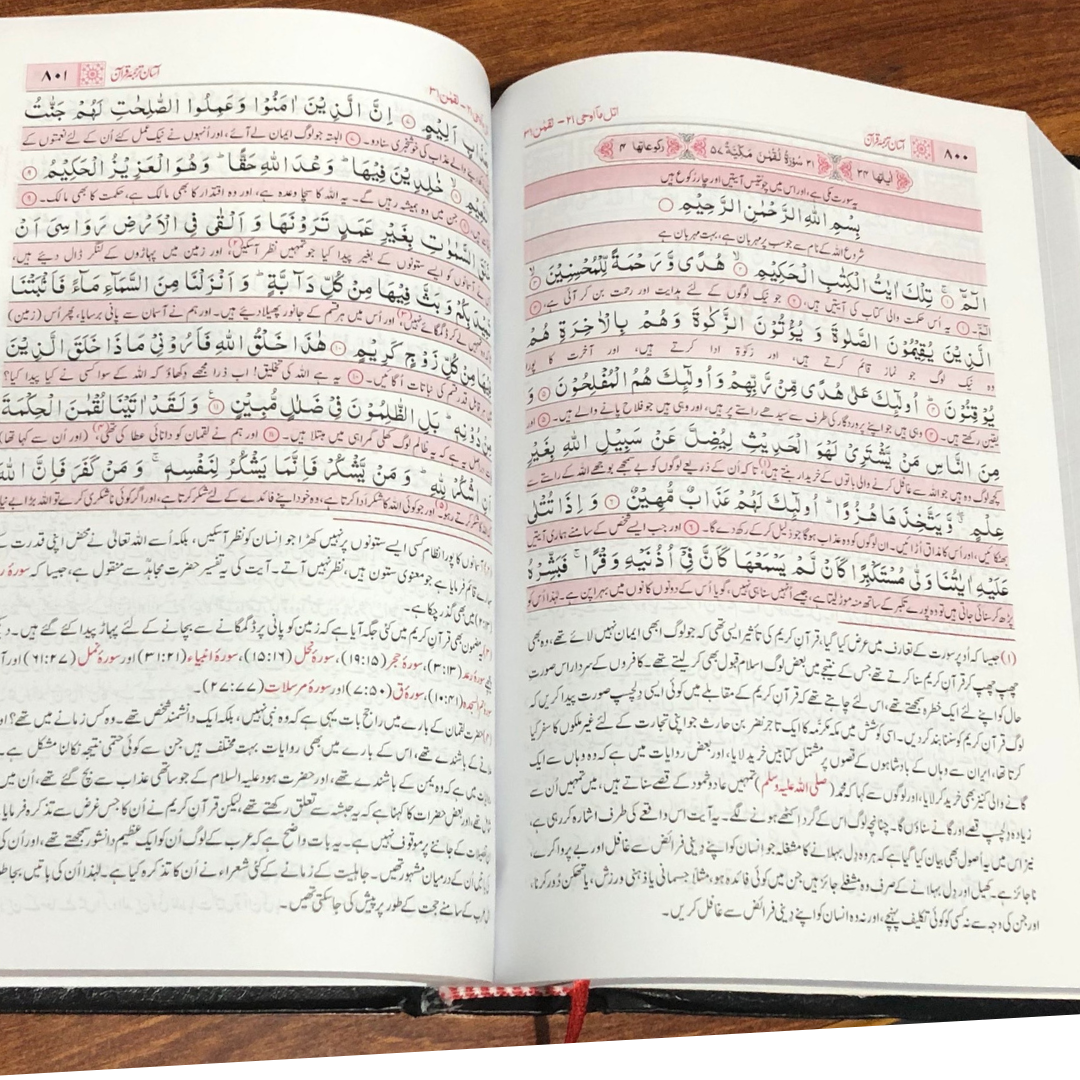 ۸۰۰
آسان ترجمۂ قرآن
اتل ما اوحی ۲۱ – لقمٰن ۳۱
اٰیاتها ۳۴
۳۱ سُوْرَةُ لُقْمٰنَ مَكِّيَّةٌ ۵۷
رکوعاتها ۴
یہ سورت مکی ہے، اور اس میں چونتیس آیتیں اور چار رکوع ہیں
بِسْمِ اللهِ الرَّحْمٰنِ الرَّحِيْمِ
شروع اللہ کے نام سے جو سب پر مہربان ہے، بہت مہربان ہے
الٓمّٓ ۝۱ تِلْكَ اٰيٰتُ الْكِتٰبِ الْحَكِيْمِ ۝۲ هُدًى وَّ رَحْمَةً لِّلْمُحْسِنِيْنَ ۝۳
الٓمّٓ۔ ۝۱ یہ اُس حکمت والی کتاب کی آیتیں ہیں، ۝۲ جو نیک لوگوں کے لئے ہدایت اور رحمت بن کر آئی ہے، ۝۳
الَّذِيْنَ يُقِيْمُوْنَ الصَّلٰوةَ وَ يُؤْتُوْنَ الزَّكٰوةَ وَهُمْ بِالْاٰخِرَةِ هُمْ
وہ نیک لوگ جو نماز قائم کرتے ہیں، اور زکوٰۃ ادا کرتے ہیں، اور آخرت کا پورا
يُوْقِنُوْنَ ۝۴ اُولٰٓئِكَ عَلٰى هُدًى مِّنْ رَّبِّهِمْ وَ اُولٰٓئِكَ هُمُ الْمُفْلِحُوْنَ ۝۵ وَ
یقین رکھتے ہیں۔ ۝۴ وہی ہیں جو اپنے پروردگار کی طرف سے سیدھے راستے پر ہیں، اور وہی ہیں جو فلاح پانے والے ہیں۔ ۝۵ اور
مِنَ النَّاسِ مَنْ يَّشْتَرِيْ لَهْوَ الْحَدِيْثِ لِيُضِلَّ عَنْ سَبِيْلِ اللهِ بِغَيْرِ
کچھ لوگ وہ ہیں جو اللہ سے غافل کرنے والی باتوں کے خریدار بنتے ہیں(۱) تاکہ اُن کے ذریعے لوگوں کو بے سمجھے بوجھے اللہ کے راستے سے
عِلْمٍ ۖ وَّ يَتَّخِذَهَا هُزُوًا ؕ اُولٰٓئِكَ لَهُمْ عَذَابٌ مُّهِيْنٌ ۝۶ وَ اِذَا تُتْلٰى
بھٹکائیں، اور اُس کا مذاق اُڑائیں۔ ان لوگوں کو وہ عذاب ہوگا جو ذلیل کر کے رکھ دے گا۔ ۝۶ اور جب ایسے شخص کے سامنے ہماری آیتیں
عَلَيْهِ اٰيٰتُنَا وَلّٰى مُسْتَكْبِرًا كَاَنْ لَّمْ يَسْمَعْهَا كَاَنَّ فِيْٓ اُذُنَيْهِ وَقْرًا ۚ فَبَشِّرْهُ
پڑھ کر سنائی جاتی ہیں تو وہ پورے تکبر کے ساتھ منہ موڑ لیتا ہے، جیسے اُنہیں سنا ہی نہیں، گویا اُس کے دونوں کانوں میں بہرا پن ہے۔ لہٰذا اُس کو
(۱) جیسا کہ اُوپر سورت کے تعارف میں عرض کیا گیا، قرآن کریم کی تاثیر ایسی تھی کہ جو لوگ ابھی ایمان نہیں لائے تھے، وہ بھی
چھپ چھپ کر قرآن کریم سنا کرتے تھے جس کے نتیجے میں بعض لوگ اسلام قبول بھی کر لیتے تھے۔ کافروں کے سردار اس صورتِ
حال کو اپنے لئے ایک خطرہ سمجھتے تھے، اس لئے چاہتے تھے کہ قرآن کریم کے مقابلے میں کوئی ایسی دِلچسپ صورت پیدا کریں کہ
لوگ قرآن کریم کو سننا بند کر دیں۔ اسی کوشش میں مکہ مکرّمہ کا ایک تاجر نضر بن حارث جو اپنی تجارت کے لئے غیر ملکوں کا سفر کیا
کرتا تھا، ایران سے وہاں کے بادشاہوں کے قصوں پر مشتمل کتابیں خرید لایا، اور بعض روایات میں ہے کہ وہ وہاں سے ایک
گانے والی کنیز بھی خرید کر لایا، اور لوگوں سے کہا کہ محمد (صلی اللہ علیہ وسلم) تمہیں عاد و ثمود کے قصے سناتے ہیں، میں تمہیں اُن سے
زیادہ دِلچسپ قصے اور گانے سناؤں گا۔ چنانچہ لوگ اس کے گرد اکٹھے ہونے لگے۔ یہ آیت اس واقعے کی طرف اشارہ کر رہی ہے،
نیز اس میں یہ اُصول بھی بیان کیا گیا ہے کہ ہر وہ دِل بہلانے کا مشغلہ جو انسان کو اپنے دِینی فرائض سے غافل اور بے پروا کرے،
ناجائز ہے۔ کھیل اور دِل بہلانے کے صرف وہ مشغلے جائز ہیں جن میں کوئی فائدہ ہو، مثلاً جسمانی یا ذہنی ورزش، یا تھکن دُور کرنا،
اور جن کی وجہ سے نہ کسی کو کوئی تکلیف پہنچے، اور نہ وہ انسان کو اپنے دِینی فرائض سے غافل کریں۔
آسان ترجمۂ قرآن
۸۰۱
لقمٰن ۳۱
اَلِيْمٍ ۝۷ اِنَّ الَّذِيْنَ اٰمَنُوْا وَعَمِلُوا الصّٰلِحٰتِ لَهُمْ جَنّٰتُ
عذاب کی خوشخبری سنا دو۔ ۝۷ البتہ جو لوگ ایمان لے آئے، اور اُنہوں نے نیک عمل کئے اُن کے لئے نعمتوں کے
النَّعِيْمِ ۝۸ خٰلِدِيْنَ فِيْهَا ؕ وَعْدَ اللهِ حَقًّا ؕ وَهُوَ الْعَزِيْزُ الْحَكِيْمُ ۝۹
جن میں وہ ہمیشہ رہیں گے۔ یہ اللہ کا سچا وعدہ ہے، اور وہ اقتدار کا بھی مالک ہے، حکمت کا بھی مالک۔ ۝۹
خَلَقَ السَّمٰوٰتِ بِغَيْرِ عَمَدٍ تَرَوْنَهَا وَ اَلْقٰى فِى الْاَرْضِ رَوَاسِيَ اَنْ
آسمانوں کو ایسے ستونوں کے بغیر پیدا کیا جو تمہیں نظر آ سکیں(۲)، اور زمین میں پہاڑوں کے لنگر ڈال دیئے ہیں،
تَمِيْدَ بِكُمْ وَ بَثَّ فِيْهَا مِنْ كُلِّ دَآبَّةٍ ؕ وَ اَنْزَلْنَا مِنَ السَّمَآءِ مَآءً فَاَنْۢبَتْنَا
ڈگمگائے نہیں(۳)، اور اُس میں ہر قسم کے جانور پھیلا دیئے ہیں۔ اور ہم نے آسمان سے پانی برسایا، پھر اُس (زمین)
فِيْهَا مِنْ كُلِّ زَوْجٍ كَرِيْمٍ ۝۱۰ هٰذَا خَلْقُ اللهِ فَاَرُوْنِيْ مَاذَا خَلَقَ الَّذِيْنَ
ہر قابلِ قدر قسم کی نباتات اُگائیں۔ ۝۱۰ یہ ہے اللہ کی تخلیق! اب ذرا مجھے دکھاؤ کہ اللہ کے سوا کسی نے کیا پیدا کیا؟
مِنْ دُوْنِهٖ ؕ بَلِ الظّٰلِمُوْنَ فِيْ ضَلٰلٍ مُّبِيْنٍ ۝۱۱ وَ لَقَدْ اٰتَيْنَا لُقْمٰنَ الْحِكْمَةَ
یہ ہے کہ یہ ظالم لوگ کھلی گمراہی میں مبتلا ہیں۔ ۝۱۱ اور ہم نے لقمان کو دانائی عطا کی تھی(۴) (اور اُن سے کہا تھا)
اَنِ اشْكُرْ لِلّٰهِ ؕ وَ مَنْ يَّشْكُرْ فَاِنَّمَا يَشْكُرُ لِنَفْسِهٖ ۚ وَ مَنْ كَفَرَ فَاِنَّ اللهَ
اللہ کا شکر کرتے رہو۔(۵) اور جو کوئی اللہ کا شکر ادا کرتا ہے، وہ خود اپنے فائدے کے لئے شکر کرتا ہے، اور اگر کوئی ناشکری کرے تو اللہ بڑا بے نیاز
آسمانوں کا پورا نظام کسی ایسے ستونوں پر نہیں کھڑا جو انسان کو نظر آ سکیں، بلکہ اُسے اللہ تعالیٰ نے محض اپنی قدرت کے
قائم فرمایا ہے جو معنوی ستون ہیں، نظر نہیں آتے۔ آیت کی یہ تفسیر حضرت مجاہدؒ سے منقول ہے، جیسا کہ سورۂ رعد
میں بھی گذر چکا ہے۔
یہ مضمون بھی قرآن کریم میں کئی جگہ آیا ہے کہ زمین کو پانی پر ڈگمگانے سے بچانے کے لئے پہاڑ پیدا کئے گئے ہیں۔
سورۂ رعد (۳:۱۳)، سورۂ حجر (۱۹:۱۵)، سورۂ نحل (۱۵:۱۶)، سورۂ انبیاء (۳۱:۲۱) اور سورۂ نمل (۶۱:۲۷)
(۱۰:۴۱)، سورۂ ق (۷:۵۰) اور سورۂ مرسلات (۲۷:۷۷)۔
حضرت لقمان کے بارے میں راجح بات یہی ہے کہ وہ نبی نہیں، بلکہ ایک دانشمند شخص تھے۔ وہ کس زمانے میں تھے؟
کے باشندے تھے، اس کے بارے میں بھی روایات بہت مختلف ہیں جن سے کوئی حتمی نتیجہ نکالنا مشکل ہے۔
میں ہے کہ وہ یمن کے باشندے تھے، اور حضرت ہود علیہ السلام کے جو ساتھی عذاب سے بچ گئے تھے، اُن میں
تھے، اور بعض حضرات کا کہنا ہے کہ یہ حبشہ سے تعلق رکھتے تھے، لیکن قرآن کریم نے اُن کا جس غرض سے تذکرہ فرمایا
کے جاننے پر موقوف نہیں ہے۔ یہ بات واضح ہے کہ عرب کے لوگ اُن کو ایک عظیم دانشور سمجھتے تھے، اور اُن کی
اُن کے درمیان مشہور تھیں۔ جاہلیت کے زمانے کے کئی شعراء نے اُن کا تذکرہ کیا ہے۔ لہٰذا اُن کی باتیں بجا طور
عرب کے سامنے حجت کے طور پر پیش کی جا سکتی تھیں۔